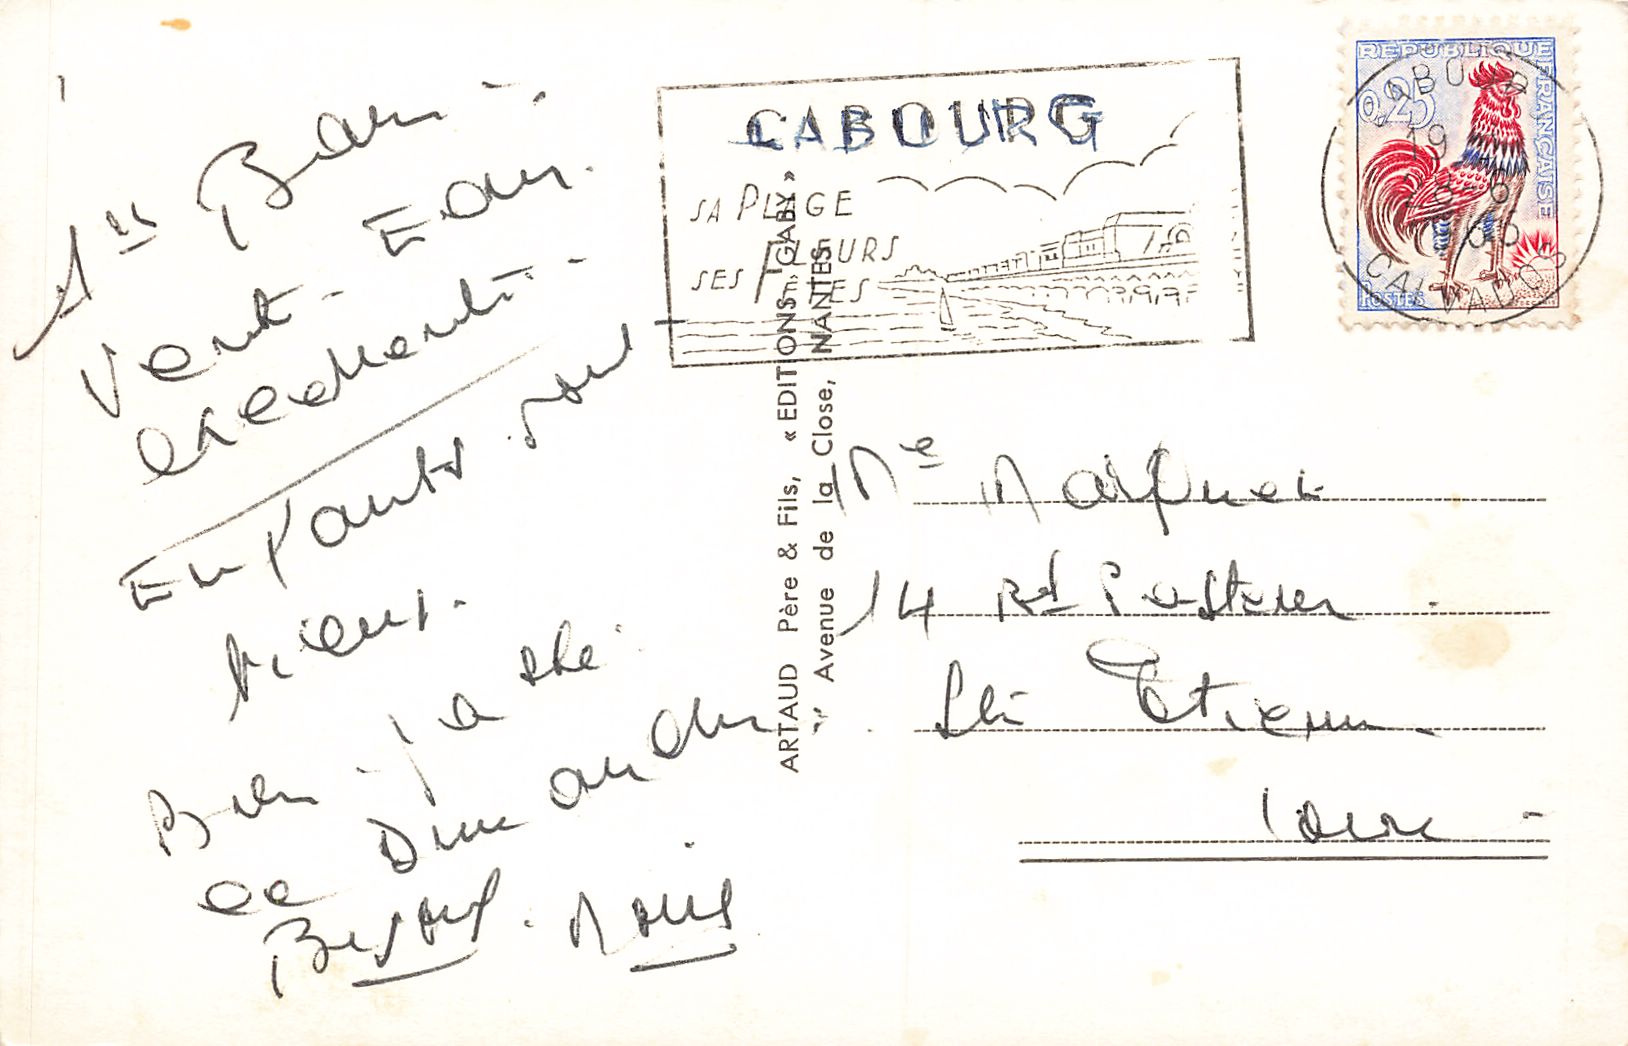 1er Bain -
Vent - Eau.
excellente -
Enfants sont
mieux.
Bien j'a été
ce Dimanche
Bisous. Denis
CABOURG
SA PLAGE
SES FLEURS
SES FETES
REPUBLIQUE FRANÇAISE
0,25
POSTES
CABOURG
19
66
CALVADOS
ARTAUD Père & Fils, « EDITIONS GABY »
Avenue de la Close, NANTES
Me Marquet
14 Rd Pasteur
St Etienne
Loire -